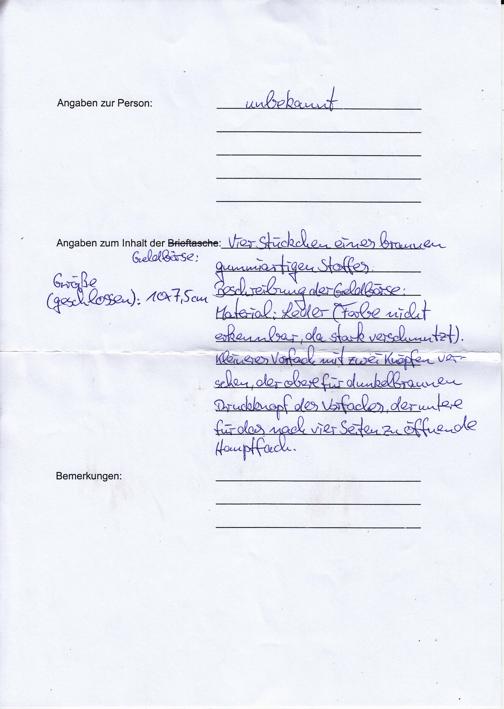 Angaben zur Person: unbekannt
Angaben zum Inhalt der Brieftasche: Vier Stückchen eines braunen
Geldbörse: gummiartigen Stoffes.
Größe
(geschlossen): 10x7,5cm
Beschreibung der Geldbörse:
Material: Leder (Farbe nicht
erkennbar, da stark verschmutzt).
Kleineres Vorfach mit zwei Knöpfen ver-
sehen, der obere für dunkelbraunen
Druckknopf des Vorfaches, der untere
für das nach vier Seiten zu öffnende
Hauptfach.
Bemerkungen: